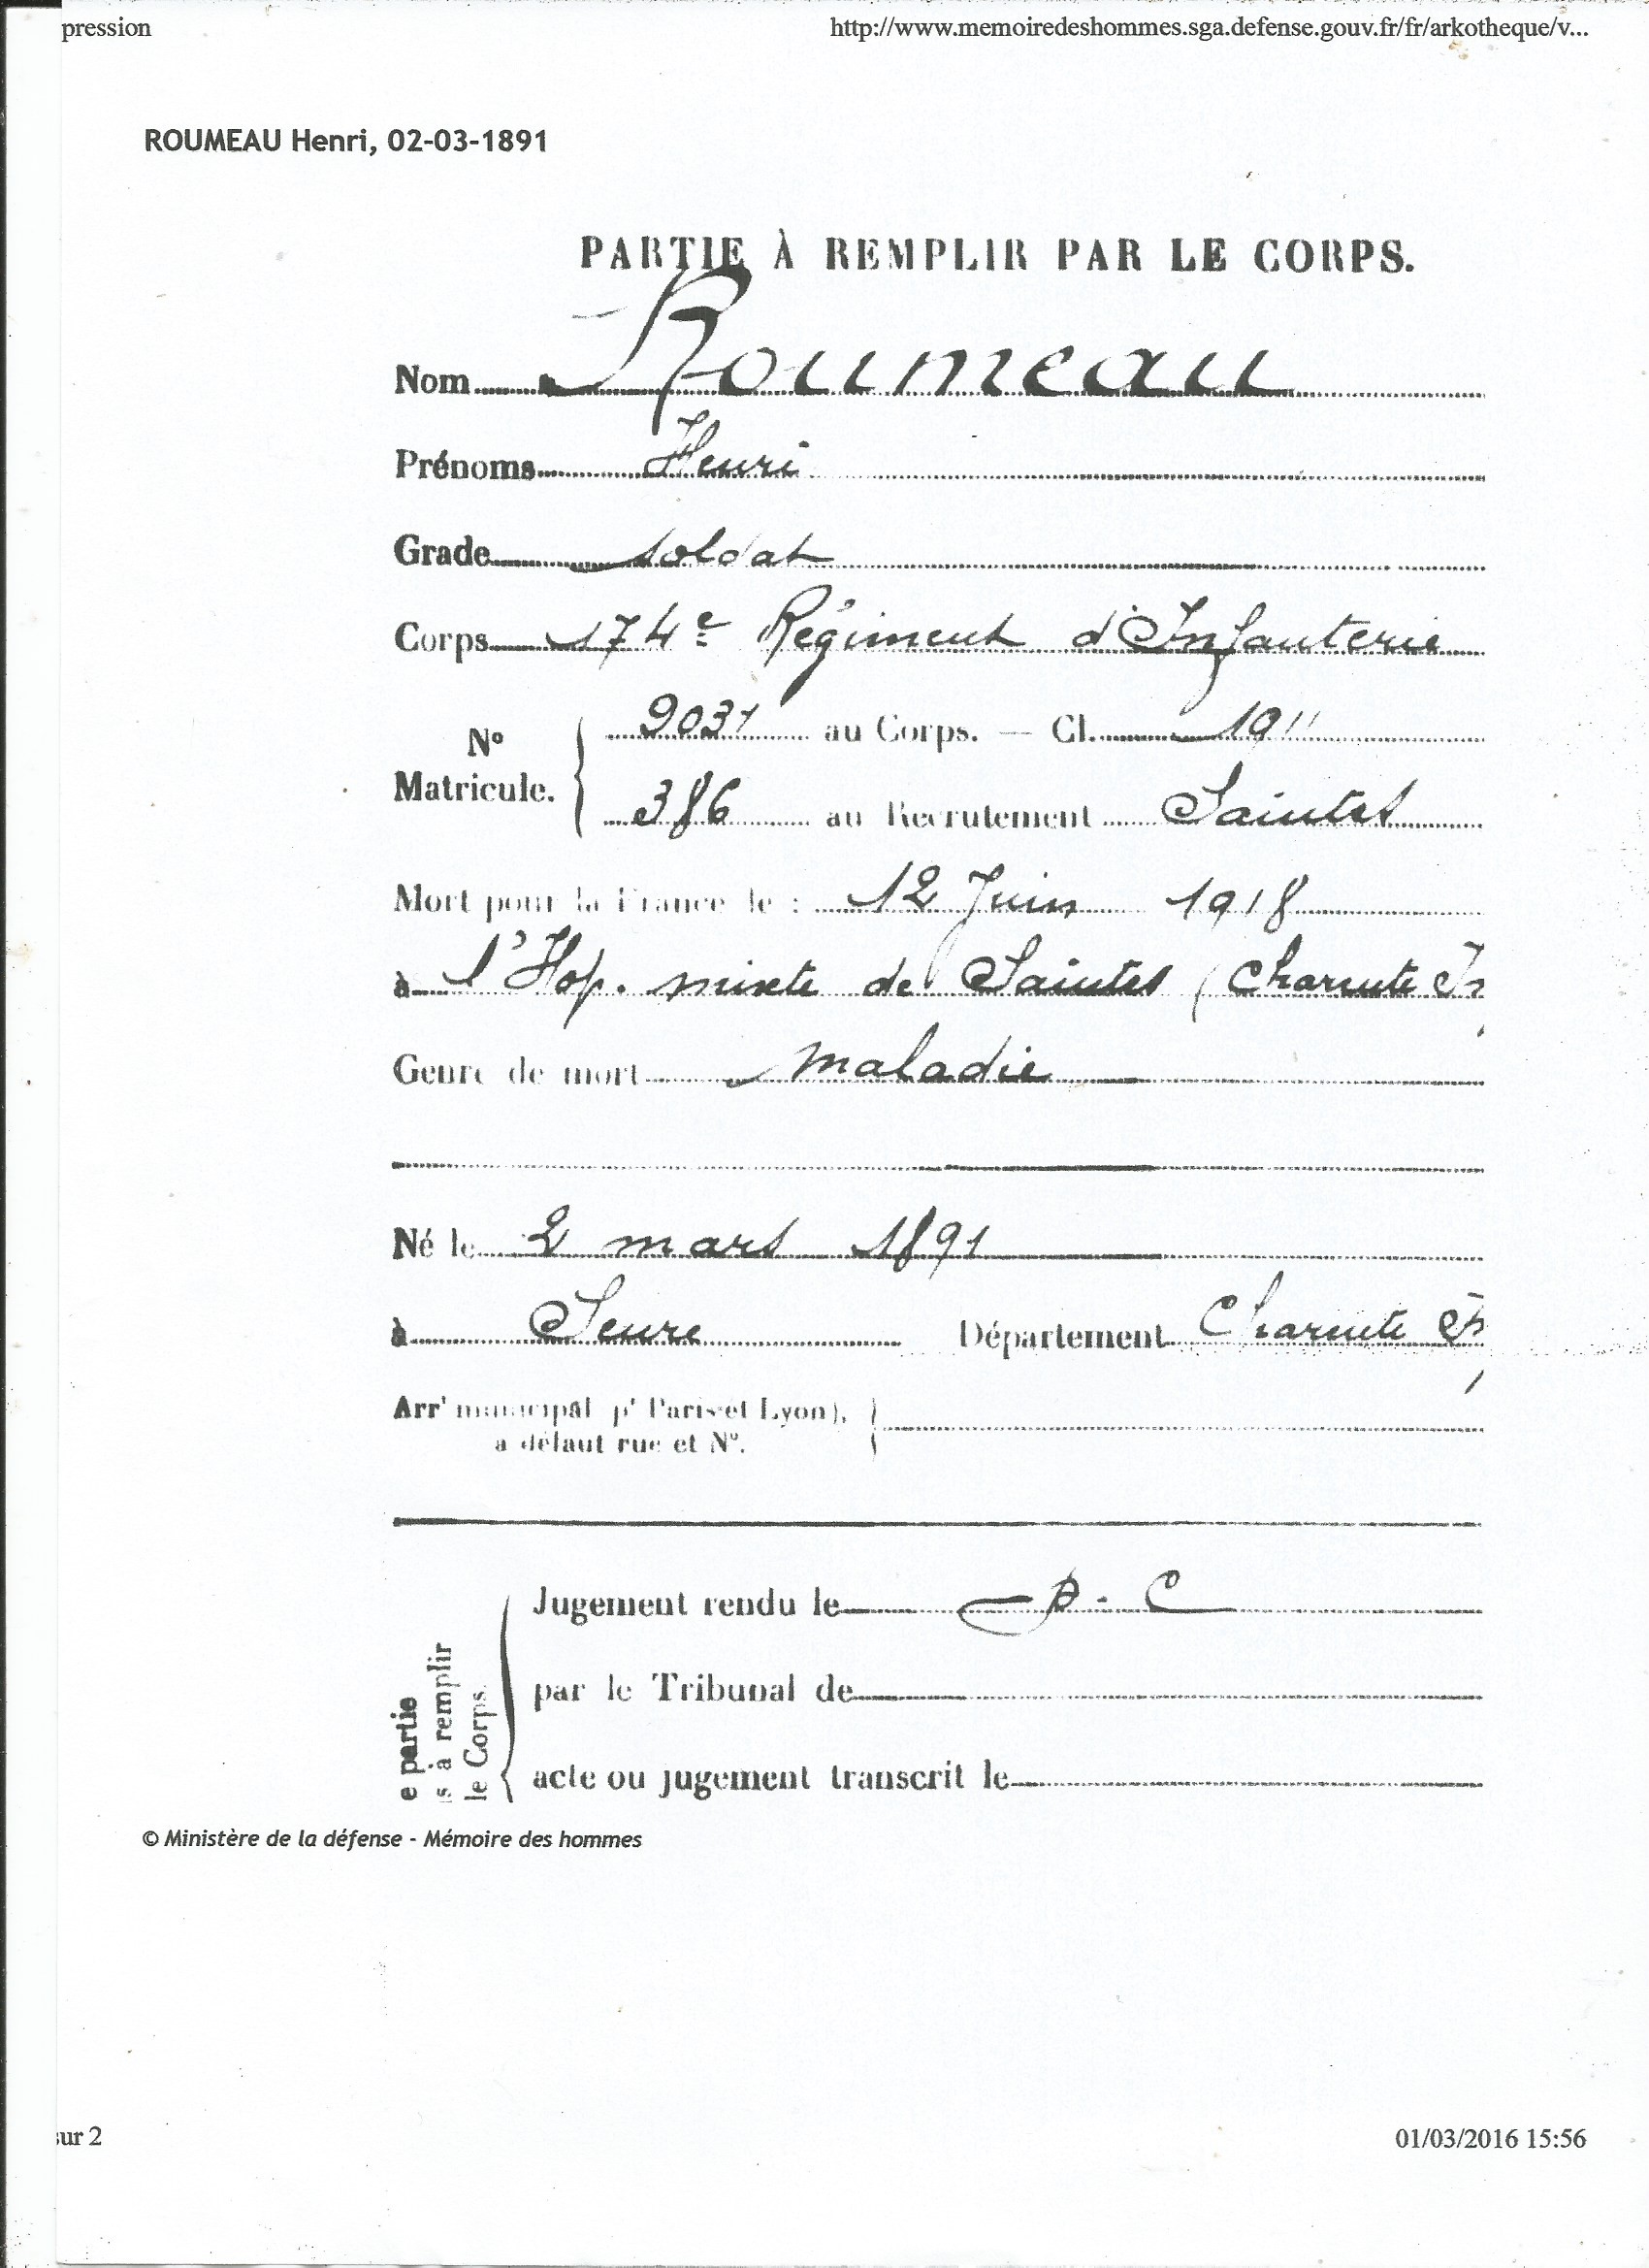 pression http://www.memoiredeshommes.sga.defense.gouv.fr/fr/arkotheque/v...
ROUMEAU Henri, 02-03-1891
PARTIE À REMPLIR PAR LE CORPS.
Nom Roumeau
Prénoms Henri
Grade soldat
Corps 174e Régiment d'Infanterie
No Matricule. { 9031 au Corps. — Cl. 1911
386 au Recrutement Saintes
Mort pour la France le : 12 Juin 1918
à l'Hop. mixte de Saintes (Charente Inf
Genre de mort maladie
Né le 2 mars 1891
à Seure Département Charente Inf
Arrt municipal pr Paris et Lyon),
à défaut rue et No.
Jugement rendu le
par le Tribunal de
acte ou jugement transcrit le
e partie
s à remplir
le Corps.
© Ministère de la défense - Mémoire des hommes
sur 2 01/03/2016 15:56